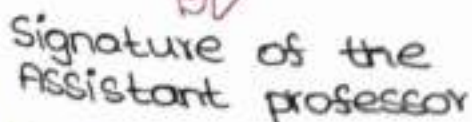 Signature of the
Assistant professor